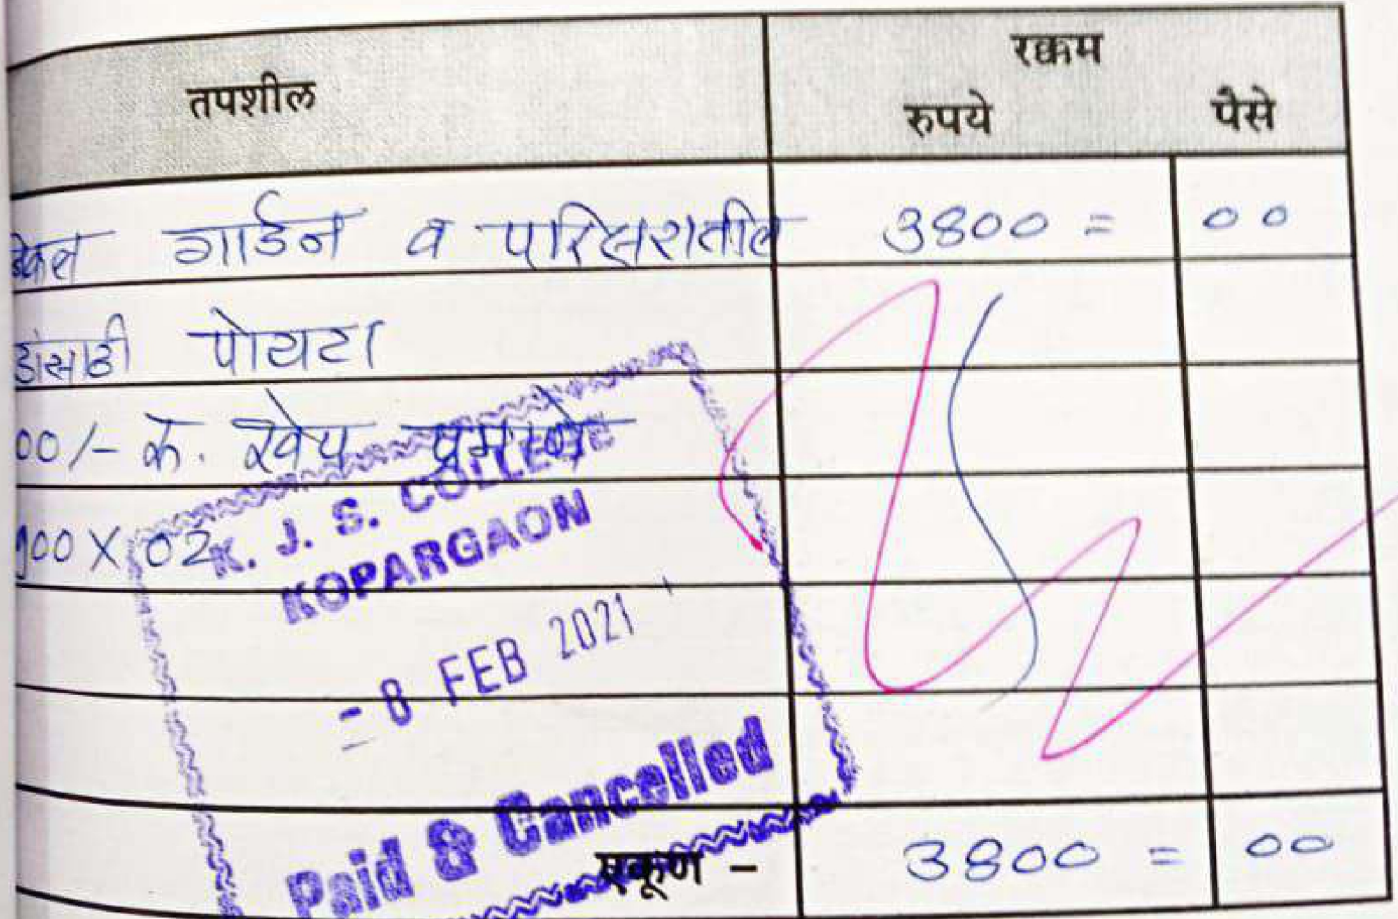 तपशील
रक्कम
रुपये पैसे
गार्डन व परिसरातील 3800 = 00
पोयटा
00/- रु. खेप प्रमाणे
00 X 02
K. J. S. COLLEGE
KOPARGAON
- 8 FEB 2021
Paid & Cancelled
एकूण - 3800 = 00